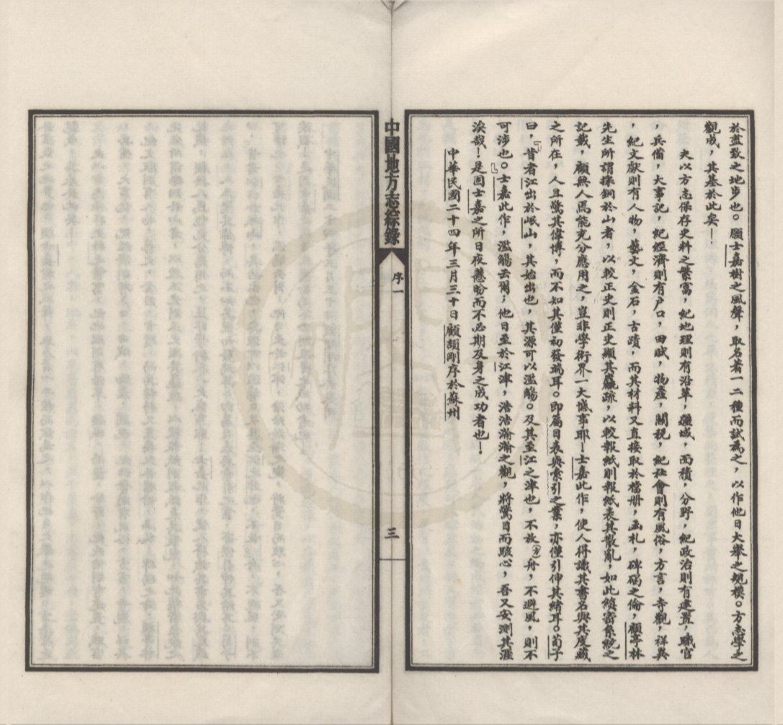 於益致之地步也。願士嘉樹之風聲，取名著一二種而試為之，以作他日大舉之規模。方志學之
觀成，其基於此矣！
夫以方志保存史料之繁富，紀地理則有沿革，疆域，面積，分野，紀政治則有建置，職官
，兵備，大事記，紀經濟則有戶口，田賦，物產，關稅，紀社會則有風俗，方言，寺觀，祥異
，紀文獻則有人物，藝文，金石，古蹟，而其材料又直接取於檔册，函札，碑碣之倫，顧亭林
先生所謂採銅於山者，以較正史則正史顯其麤疏，以較報紙則報紙表其散亂，如此縝密系統之
記載，顧無人焉能充分應用之，豈非學術界一大憾事耶！士嘉此作，使人得識其書名與其庋藏
之所在，人且驚其偉博，而不知其僅初發端耳。即篇目表與索引之業，亦僅引伸其緒耳。荀子
曰，「昔者江出於岷山，其始出也，其源可以濫觴。及其至江之津也，不放(方)舟，不避風，則不
可涉也。」士嘉此作，濫觴云爾；他日至於江津，浩浩瀚瀚之觀，將驚目而駭心，吾又安測其涯
涘哉！是固士嘉之所日夜蘄盼而不必期及身之成功者也！
中華民國二十四年三月三十日顧頡剛序於蘇州
中國地方志綜錄
序一
三